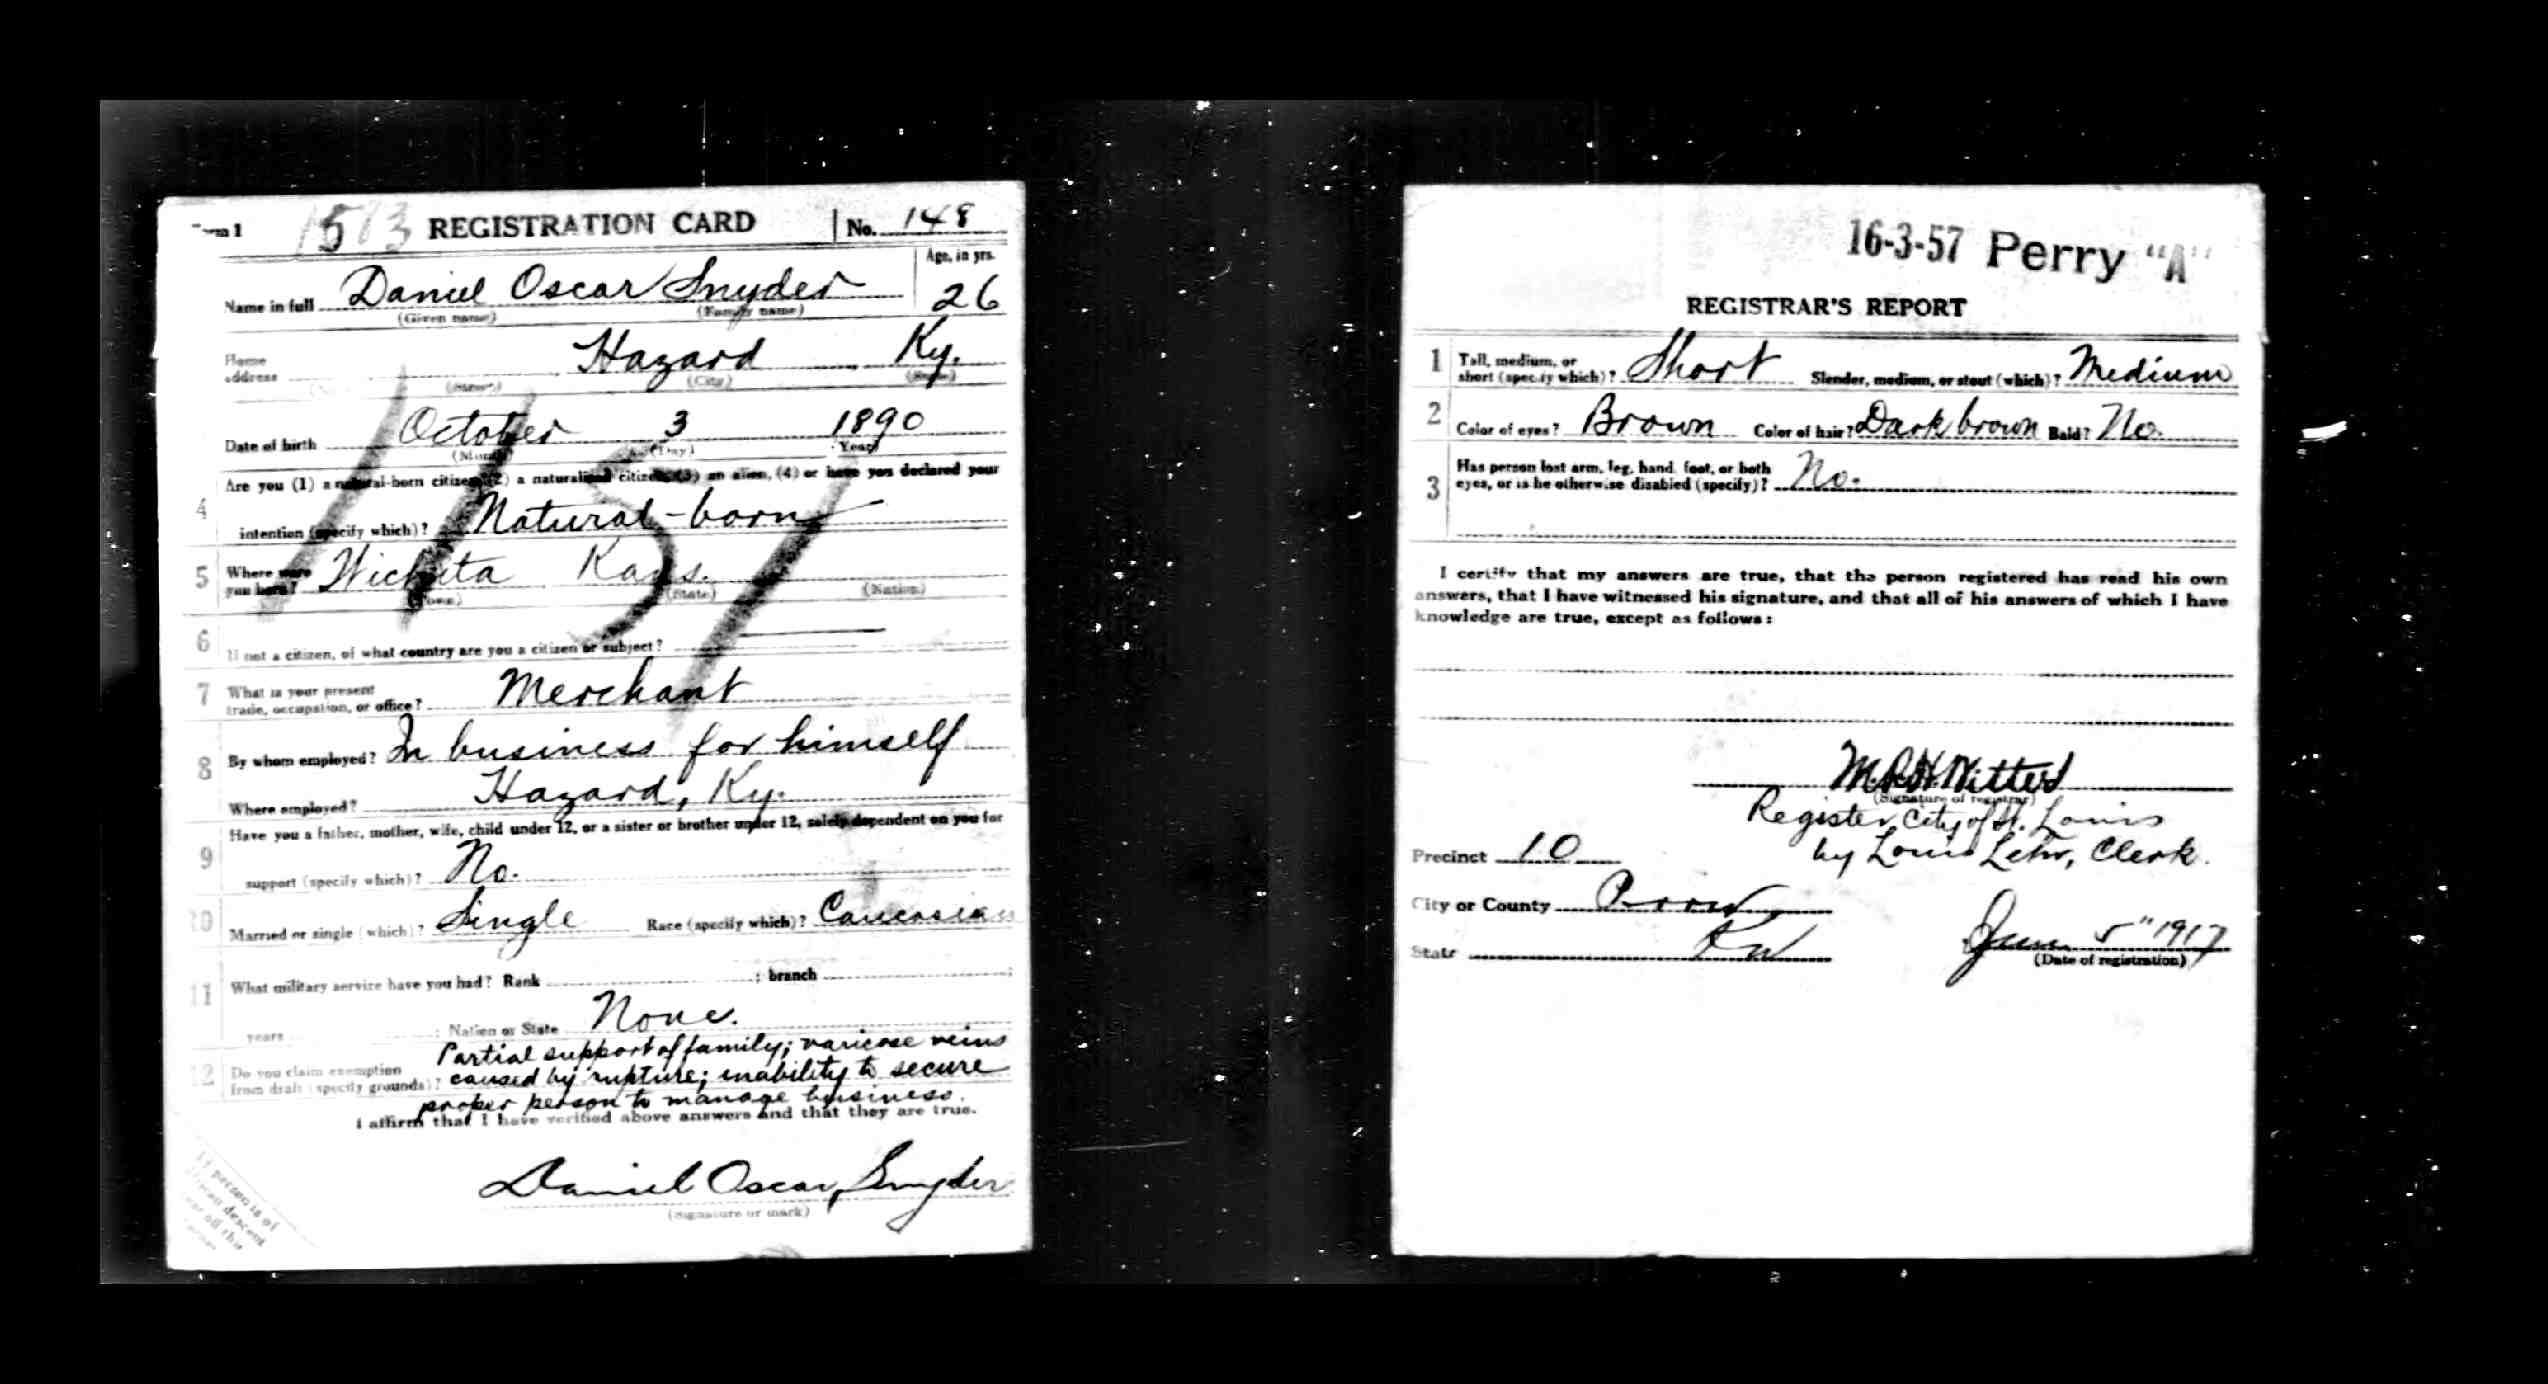 1573 REGISTRATION CARD No. 148
Age, in yrs.
Name in full Daniel Oscar Snyder 26
(Given name) (Family name)
Home address Hazard Ky.
(Street) (City) (State)
Date of birth October 3 1890
(Month) (Day) (Year)
4 Are you (1) a natural-born citizen, (2) a naturalized citizen, (3) an alien, (4) or have you declared your
intention (specify which)? Natural-born
5 Where were you born? Wichita Kans.
(Town) (State) (Nation)
6 If not a citizen, of what country are you a citizen or subject?
7 What is your present
trade, occupation, or office? Merchant
8 By whom employed? In business for himself
Where employed? Hazard, Ky.
9 Have you a father, mother, wife, child under 12, or a sister or brother under 12, solely dependent on you for
support (specify which)? No.
10 Married or single (which)? Single Race (specify which)? Caucasian
11 What military service have you had? Rank ; branch ;
years ; Nation or State None.
12 Do you claim exemption
from draft (specify grounds)? Partial support of family; varicose veins
caused by rupture; inability to secure
proper person to manage business.
I affirm that I have verified above answers and that they are true.
Daniel Oscar Snyder
(Signature or mark)
person is of
descent
16-3-57 Perry "A"
REGISTRAR'S REPORT
1 Tall, medium, or
short (specify which)? Short Slender, medium, or stout (which)? Medium
2 Color of eyes? Brown Color of hair? Dark brown Bald? No.
3 Has person lost arm, leg, hand, foot, or both
eyes, or is he otherwise disabled (specify)? No.
I certify that my answers are true, that the person registered has read his own
answers, that I have witnessed his signature, and that all of his answers of which I have
knowledge are true, except as follows:
(Signature of registrar)
Register City of St. Louis
by Louis Clerk.
Precinct 10
City or County Perry
State Ky
June 5" 1917
(Date of registration)